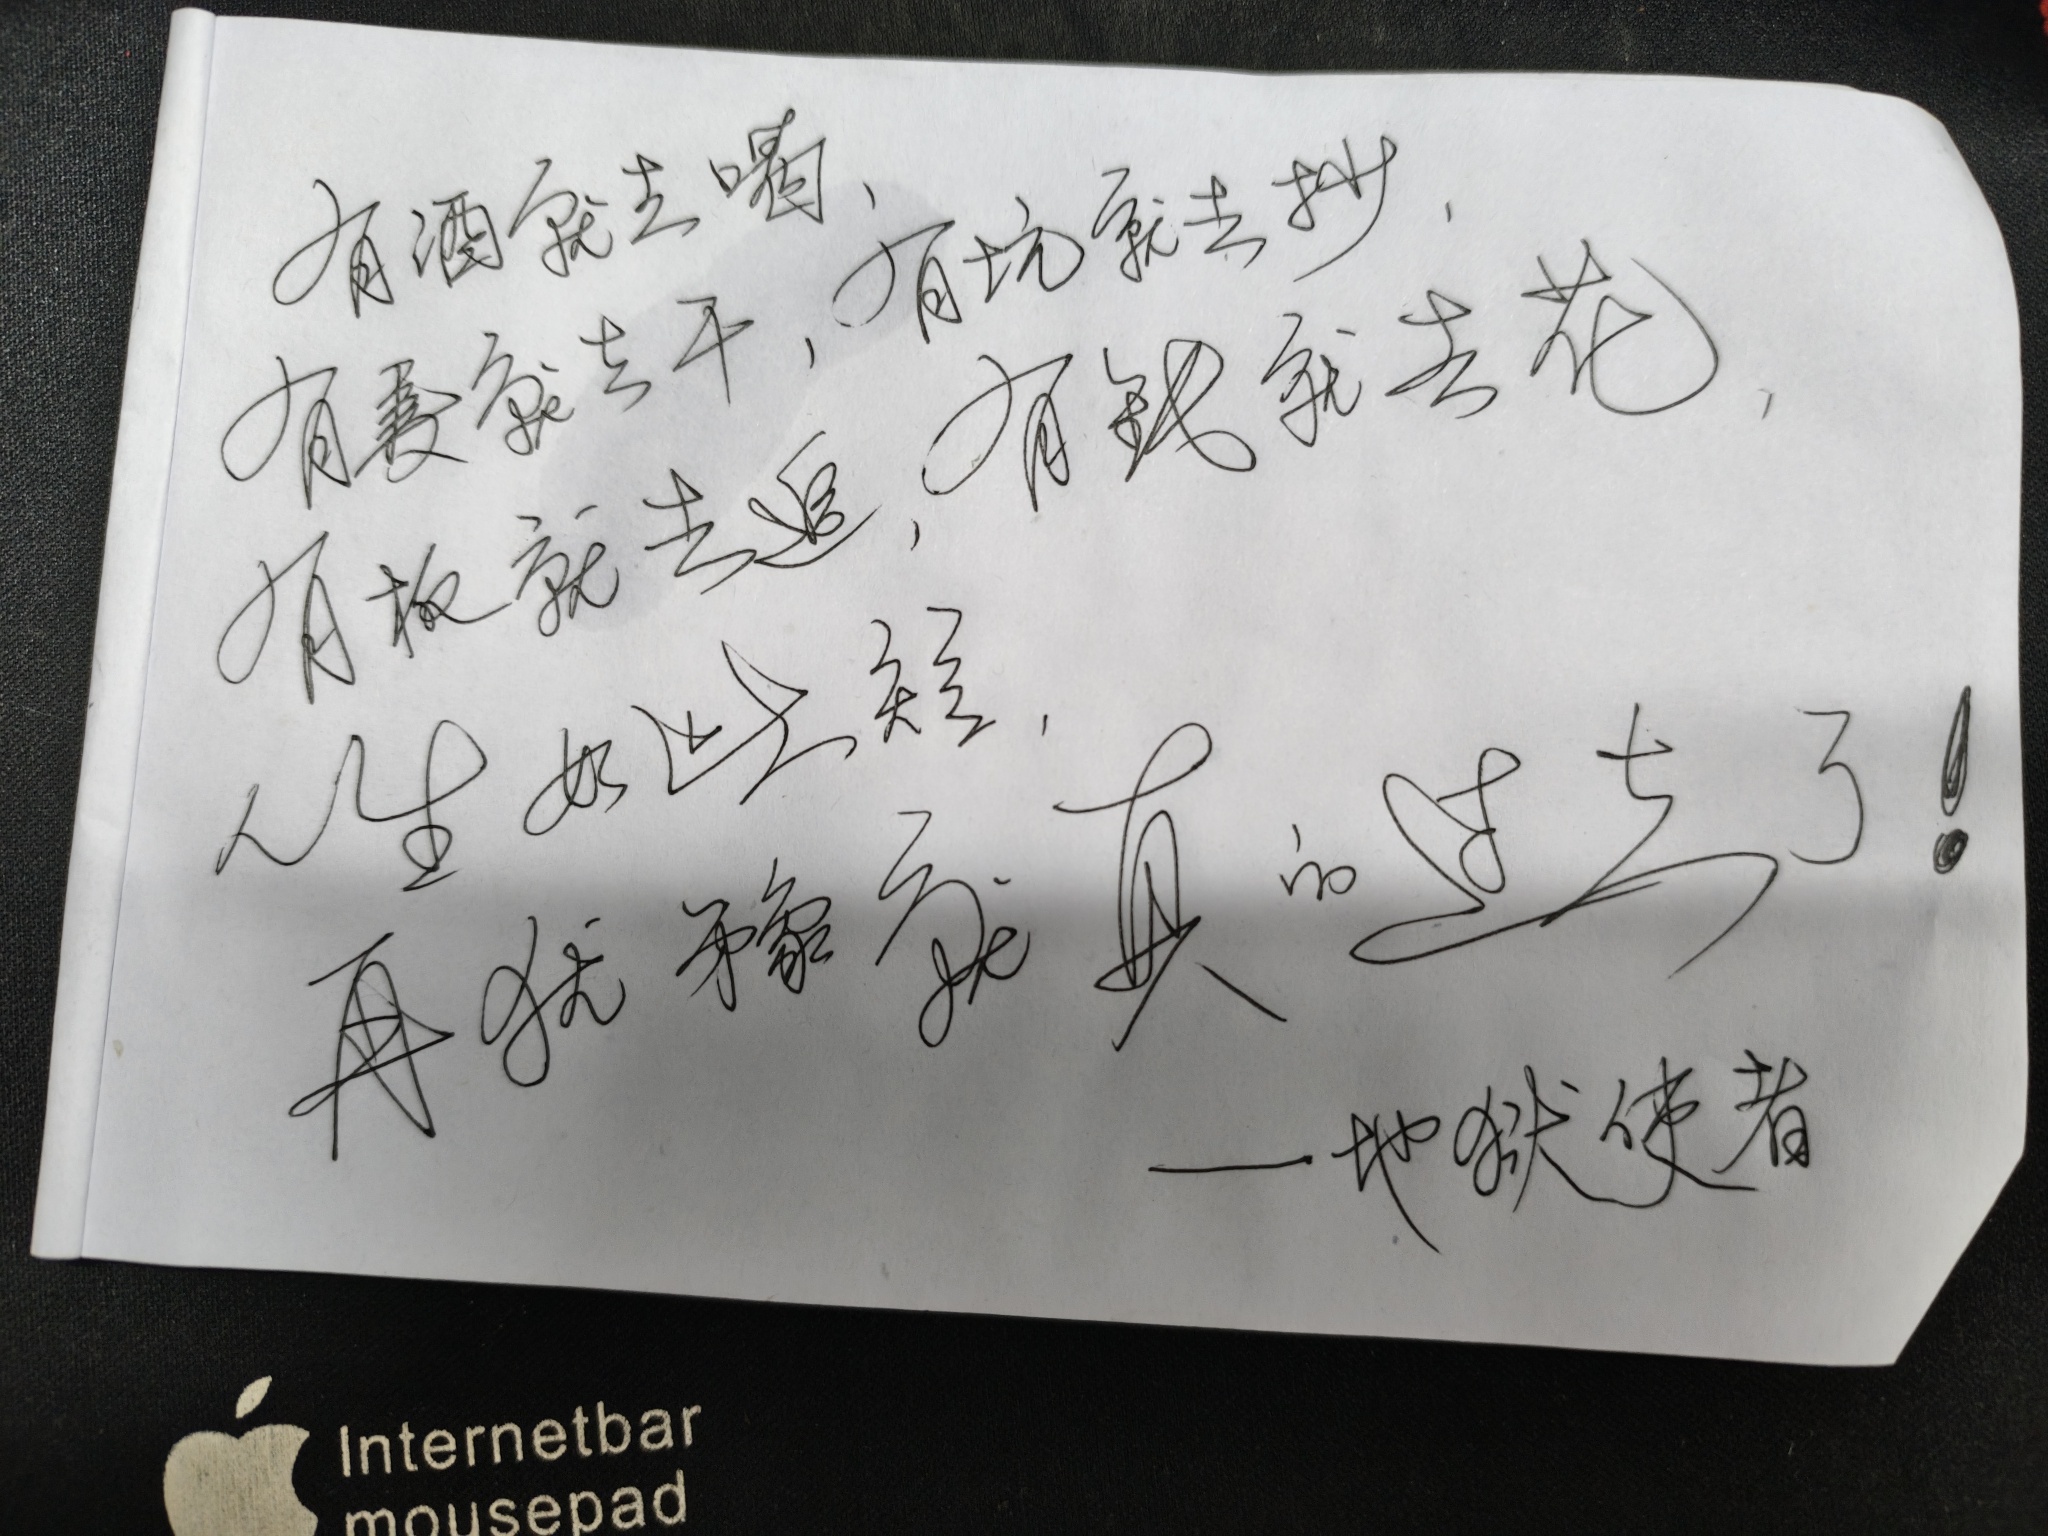 有酒就去喝，有坑就去抄，
有要就去干，有钱就去花，
有板就去追，
人生如此短，
再犹豫就真的过去了！
—地狱使者
Internetbar
mousepad